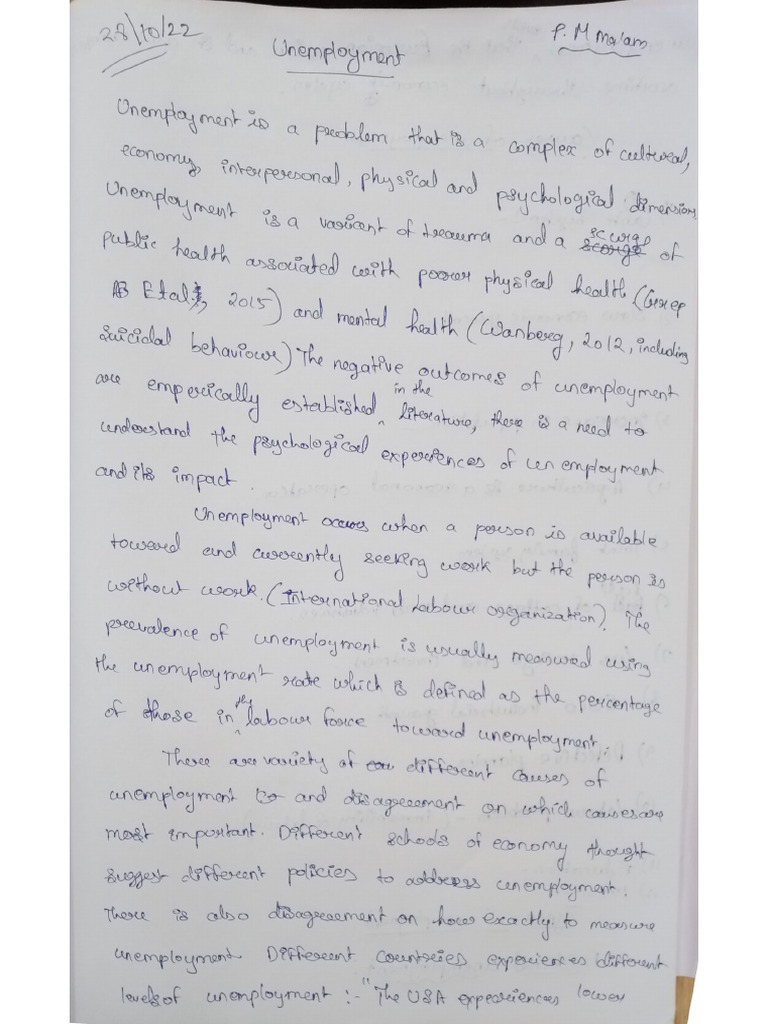 28/10/22
Unemployment
P. M ma'am
Unemployment is a problem that is a complex of cultural,
economy, interpersonal, physical and psychological dimension.
Unemployment is a varient of trauma and a scurge of
public health associated with poorer physical health (Grrep
AB Etal., 2015) and mental health (Wanberg, 2012, including
suicidal behaviour) The negative outcomes of unemployment
are emperically established in the literature, there is a need to
understand the psychological experiences of unemployment
and its impact.
Unemployment occurs when a person is available
toward and currently seeking work but the person is
without work. (International Labour organization). The
prevalence of unemployment is usually measured using
the unemployment rate which is defined as the percentage
of those in the labour force toward unemployment.
There are variety of different causes of
unemployment and disagreement on which causes are
most important. Different schools of economy thought
suggest different policies to address unemployment.
There is also disagreement on how exactly to measure
unemployment. Different countries experiences different
levels of unemployment :- "The USA experiences lower